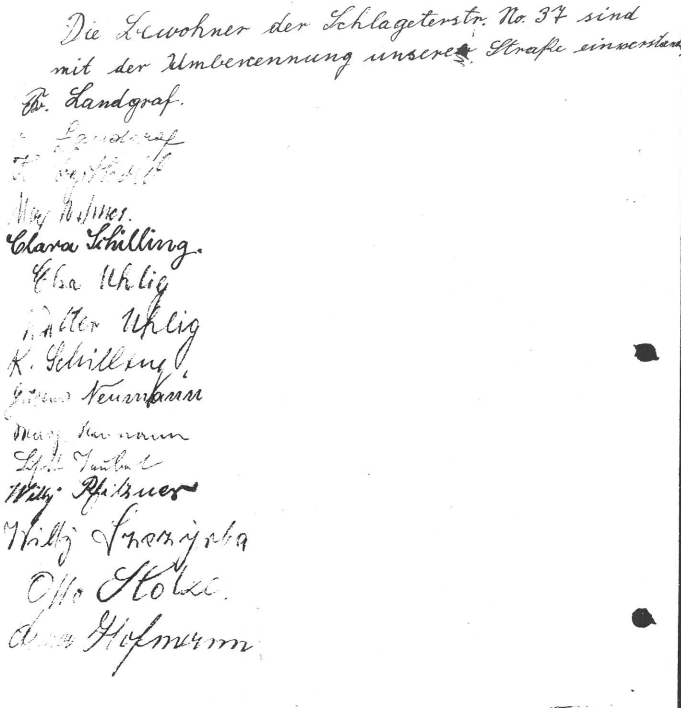 Die Bewohner der Schlageterstr. No. 37 sind
mit der Umbenennung unserer Straße einverstand
Landgraf.
Landgraf
Clara Schilling.
Elsa Uhlig
Walter Uhlig
K. Schilling
Neumann
Neumann
Willy Pfitzner
Willy
Otto Stolze.
Hofmann